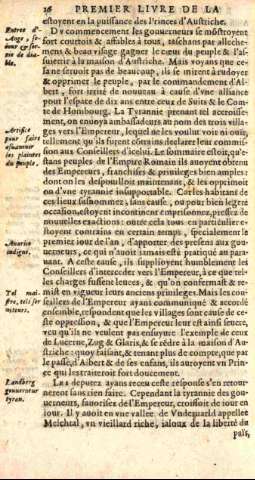 26 PREMIER LIVRE DE LA
estoyent en la puissance des Princes d'Austriche.
Entree d'Ange,
sortie
de diable.
Du commencement les gouuerneurs se mõstroyent
fort courtois & affables à tous, taschans par alleche-
mens & beau visage gagner le cœur du peuple & l'as-
suiettir à la maison d'Austriche. Mais voyans que ce-
la ne seruoit pas de beaucoup, ils se mirent à rudoyer
& opprimer le peuple, par le commandement d'Al-
bert, fort irrité de nouueau à cause d'vne alliance
pour l'espace de dix ans entre ceux de Suits & le Com-
te de Hombourg. La Tyrannie prenant tel accroisse-
Artifice
pour faire
esuanouir
les plaintes
du peuple.
ment, on enuoya ambassadeurs au nom des trois villa-
ges vers l'Empereur, lequel ne les voulut voir ni ouir,
tellement qu'ils furẽt cõtrains declarer leur commis-
sion aux Conseillers d'icelui. Le sommaire estoit, qu'e-
stans peuples de l'Empire Romain ils auoyent obtenu
des Empereurs, franchises & priuileges bien amples:
dont on les despouilloit maintenant, & les opprimoit
on d'vne tyrannie insupportable. Car les habitans de
ces lieux sissnommez, sans cause, ou pour bien legere
occasion, estoyẽt incontinent emprisonnez, pressez de
nouuelles exactions: outre cela tous en particulier e-
stoyent contrains en certain temps, specialement le
Auarice
indigne.
premier iour de l'an, d'apporter des presens aux gou-
uerneurs, ce qui n'auoit iamais esté pratiqué au para-
uant. A ceste cause, ils supplioyent humblement les
Conseillers d'interceder vers l'Empereur, à ce que tel-
les charges fussent leuees, & qu'on confermast & re-
mist en vigueur leurs anciens priuileges. Mais les con-
Tel maistre,
tels seruiteurs.
seillers de l'Empereur ayant communiqué & accordé
ensemble, respondent que les villages sont cause de ce-
ste oppression, & que l'Empereur leur est ainsi seuere,
veu qu'ils ne veulent pas ensuyure l'exemple de ceux
de Lucerne, Zug & Glaris, & se rẽdre à la maison d'Au-
striche: quoy faisant, & tenant plus de compte, que par
le passé, d'Albert & de ses enfans, ils auroyent vn Prin-
ce qui les traiteroit fort doucement.
Landberg
gouuerneur
tyran.
Les deputez ayans receu ceste response s'en retour-
nerent sans rien faire. Cependant la tyrannie des gou-
uerneurs, fauorisez de l'Empereur, croissoit de iour en
iour. Il y auoit en vne vallee de Vndeuald appellee
Melchtal, vn vieillard riche, ialoux de la liberté du
pais,